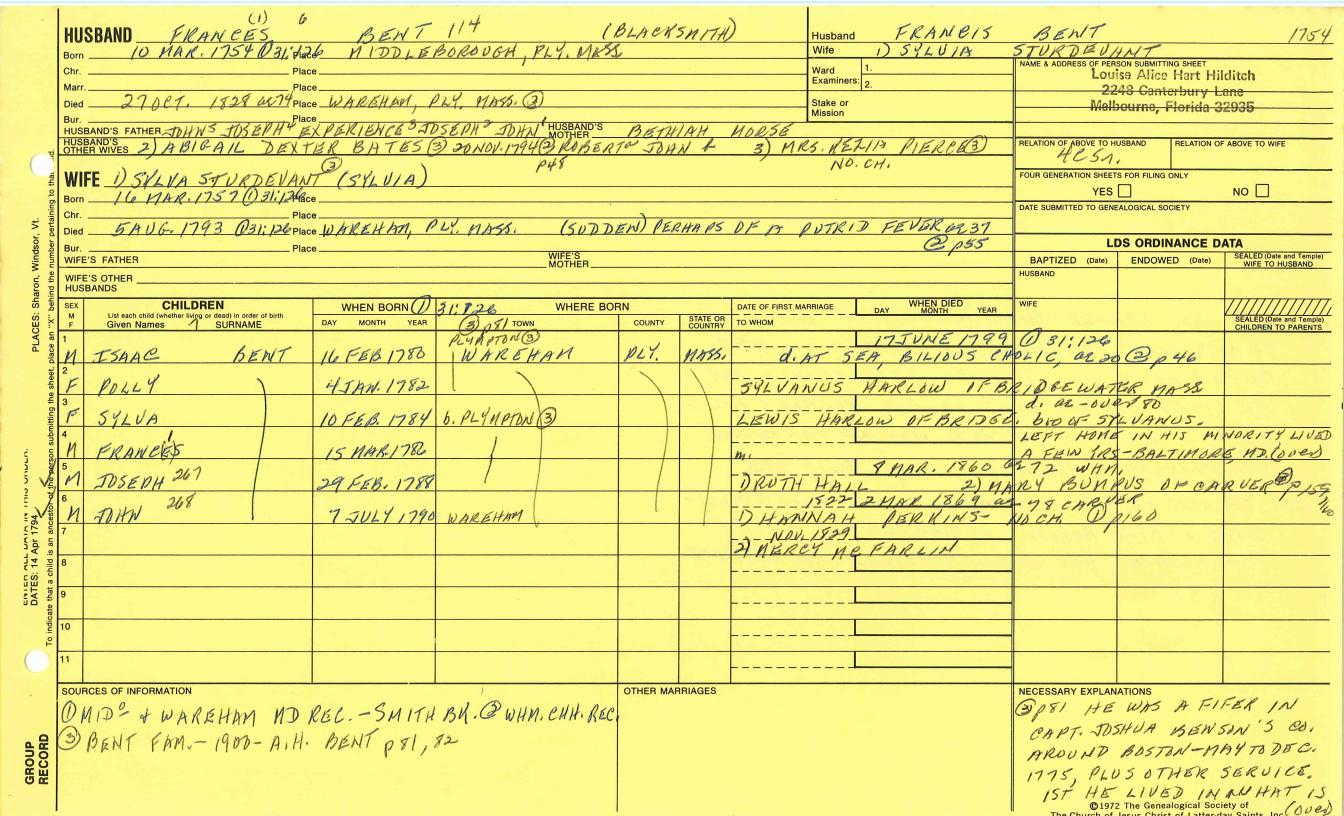 (1) 6
HUSBAND FRANCES BENT 114 (BLACKSMITH)
Born 10 MAR. 1754 ① 31:126 Place MIDDLEBOROUGH, PLY. MASS
Chr. Place
Marr. Place
Died 27 OCT. 1828 ae 74 Place WAREHAM, PLY. MASS. ③
Bur. Place
HUSBAND'S FATHER JOHN⁵ JOSEPH⁴ EXPERIENCE³ JOSEPH² JOHN¹ HUSBAND'S MOTHER BETHIAH MORSE
HUSBAND'S OTHER WIVES 2) ABIGAIL DEXTER BATES ③ 20 NOV. 1794 ② ROBERT JOHN & 3) MRS. KEZIA PIERCE ③
p48 NO. CH.
Husband FRANCIS BENT 1754
Wife 1) SYLVIA STURDEVANT
Ward Examiners: 1.
2.
Stake or Mission
NAME & ADDRESS OF PERSON SUBMITTING SHEET
Louise Alice Hart Hilditch
2248 Canterbury Lane
Melbourne, Florida 32935
RELATION OF ABOVE TO HUSBAND RELATION OF ABOVE TO WIFE
FOUR GENERATION SHEETS FOR FILING ONLY
YES NO
DATE SUBMITTED TO GENEALOGICAL SOCIETY
③
WIFE 1) SYLVA STURDEVANT (SYLVIA)
Born 16 MAR. 1757 ① 31:126 Place
Chr. Place
Died 5 AUG. 1793 ① 31:126 Place WAREHAM, PLY. MASS. (SUDDEN) PERHAPS OF A PUTRID FEVER ae 37
Bur. Place ② p55
WIFE'S FATHER WIFE'S MOTHER
WIFE'S OTHER HUSBANDS
LDS ORDINANCE DATA
BAPTIZED (Date) ENDOWED (Date) SEALED (Date and Temple) WIFE TO HUSBAND
HUSBAND
WIFE
SEALED (Date and Temple) CHILDREN TO PARENTS
SEX M F CHILDREN WHEN BORN ① 31:126 WHERE BORN DATE OF FIRST MARRIAGE WHEN DIED
List each child (whether living or dead) in order of birth
Given Names SURNAME DAY MONTH YEAR ③ p81 TOWN COUNTY STATE OR COUNTRY TO WHOM DAY MONTH YEAR
1 PLYMPTON ③ 17 JUNE 1799 ① 31:126
M ISAAC BENT 16 FEB 1780 WAREHAM PLY. MASS. d. AT SEA, BILIOUS CHOLIC, ae 20 ② p46
2
F POLLY 4 JAN. 1782 SYLVANUS HARLOW OF BRIDGEWATER MASS
3 d. ae - over 80
F SYLVA 10 FEB. 1784 b. PLYMPTON ③ LEWIS HARLOW OF BRIDGE. bro OF SYLVANUS.
4 LEFT HOME IN HIS MINORITY LIVED
M FRANCIS 15 MAR. 1786 m. A FEW YRS - BALTIMORE, MD. (over)
5 8 MAR. 1860 ae 72 WHM.
M JOSEPH 267 29 FEB. 1788 1) RUTH HALL 2) MARY BUMPUS OF CARVER
6 268 1822 2 MAR 1869 ae 78 CARVER
M JOHN 7 JULY 1790 WAREHAM 1) HANNAH PERKINS - NO CH. ① p160
7 NOV. 1829
2) MERCY McFARLIN
8
9
10
11
SOURCES OF INFORMATION
① MIDº & WAREHAM MD REC. - SMITH BK. ② WHM. CHH. REC.
③ BENT FAM. - 1900 - A.H. BENT p81, 82
OTHER MARRIAGES
NECESSARY EXPLANATIONS
③ p81 HE WAS A FIFER IN
CAPT. JOSHUA BENSON'S CO.
AROUND BOSTON - MAY TO DEC.
1775, PLUS OTHER SERVICE.
1ST HE LIVED IN WHAT IS
(over)
©1972 The Genealogical Society of
The Church of Jesus Christ of Latter-day Saints, Inc.
PLACES: Sharon, Windsor, Vt.
ENTER ALL DATA IN THIS ORDER:
DATES: 14 Apr 1794
To indicate that a child is an ancestor of the person submitting the sheet, place an "X" behind the number pertaining to that
GROUP RECORD